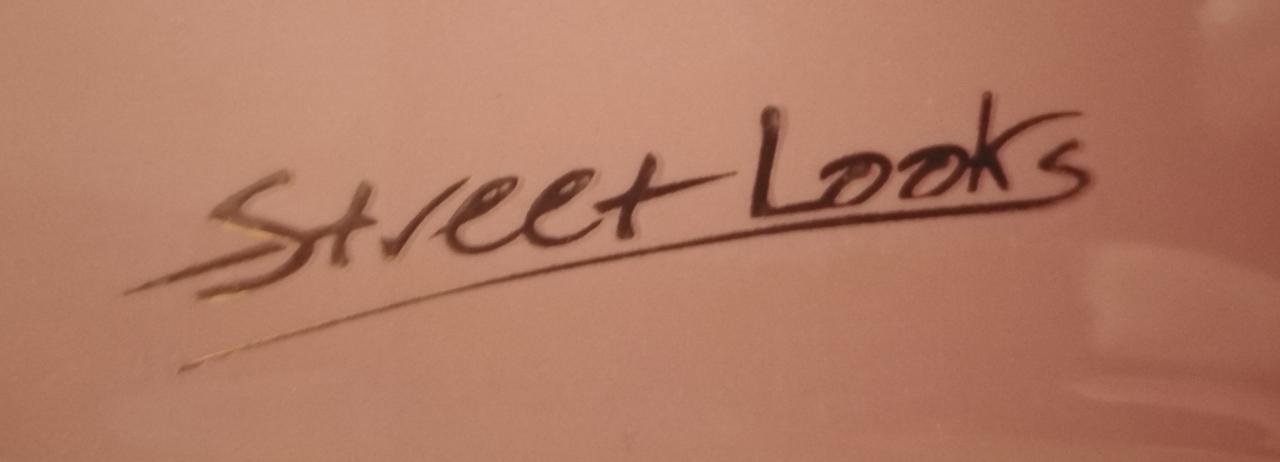 Street Looks